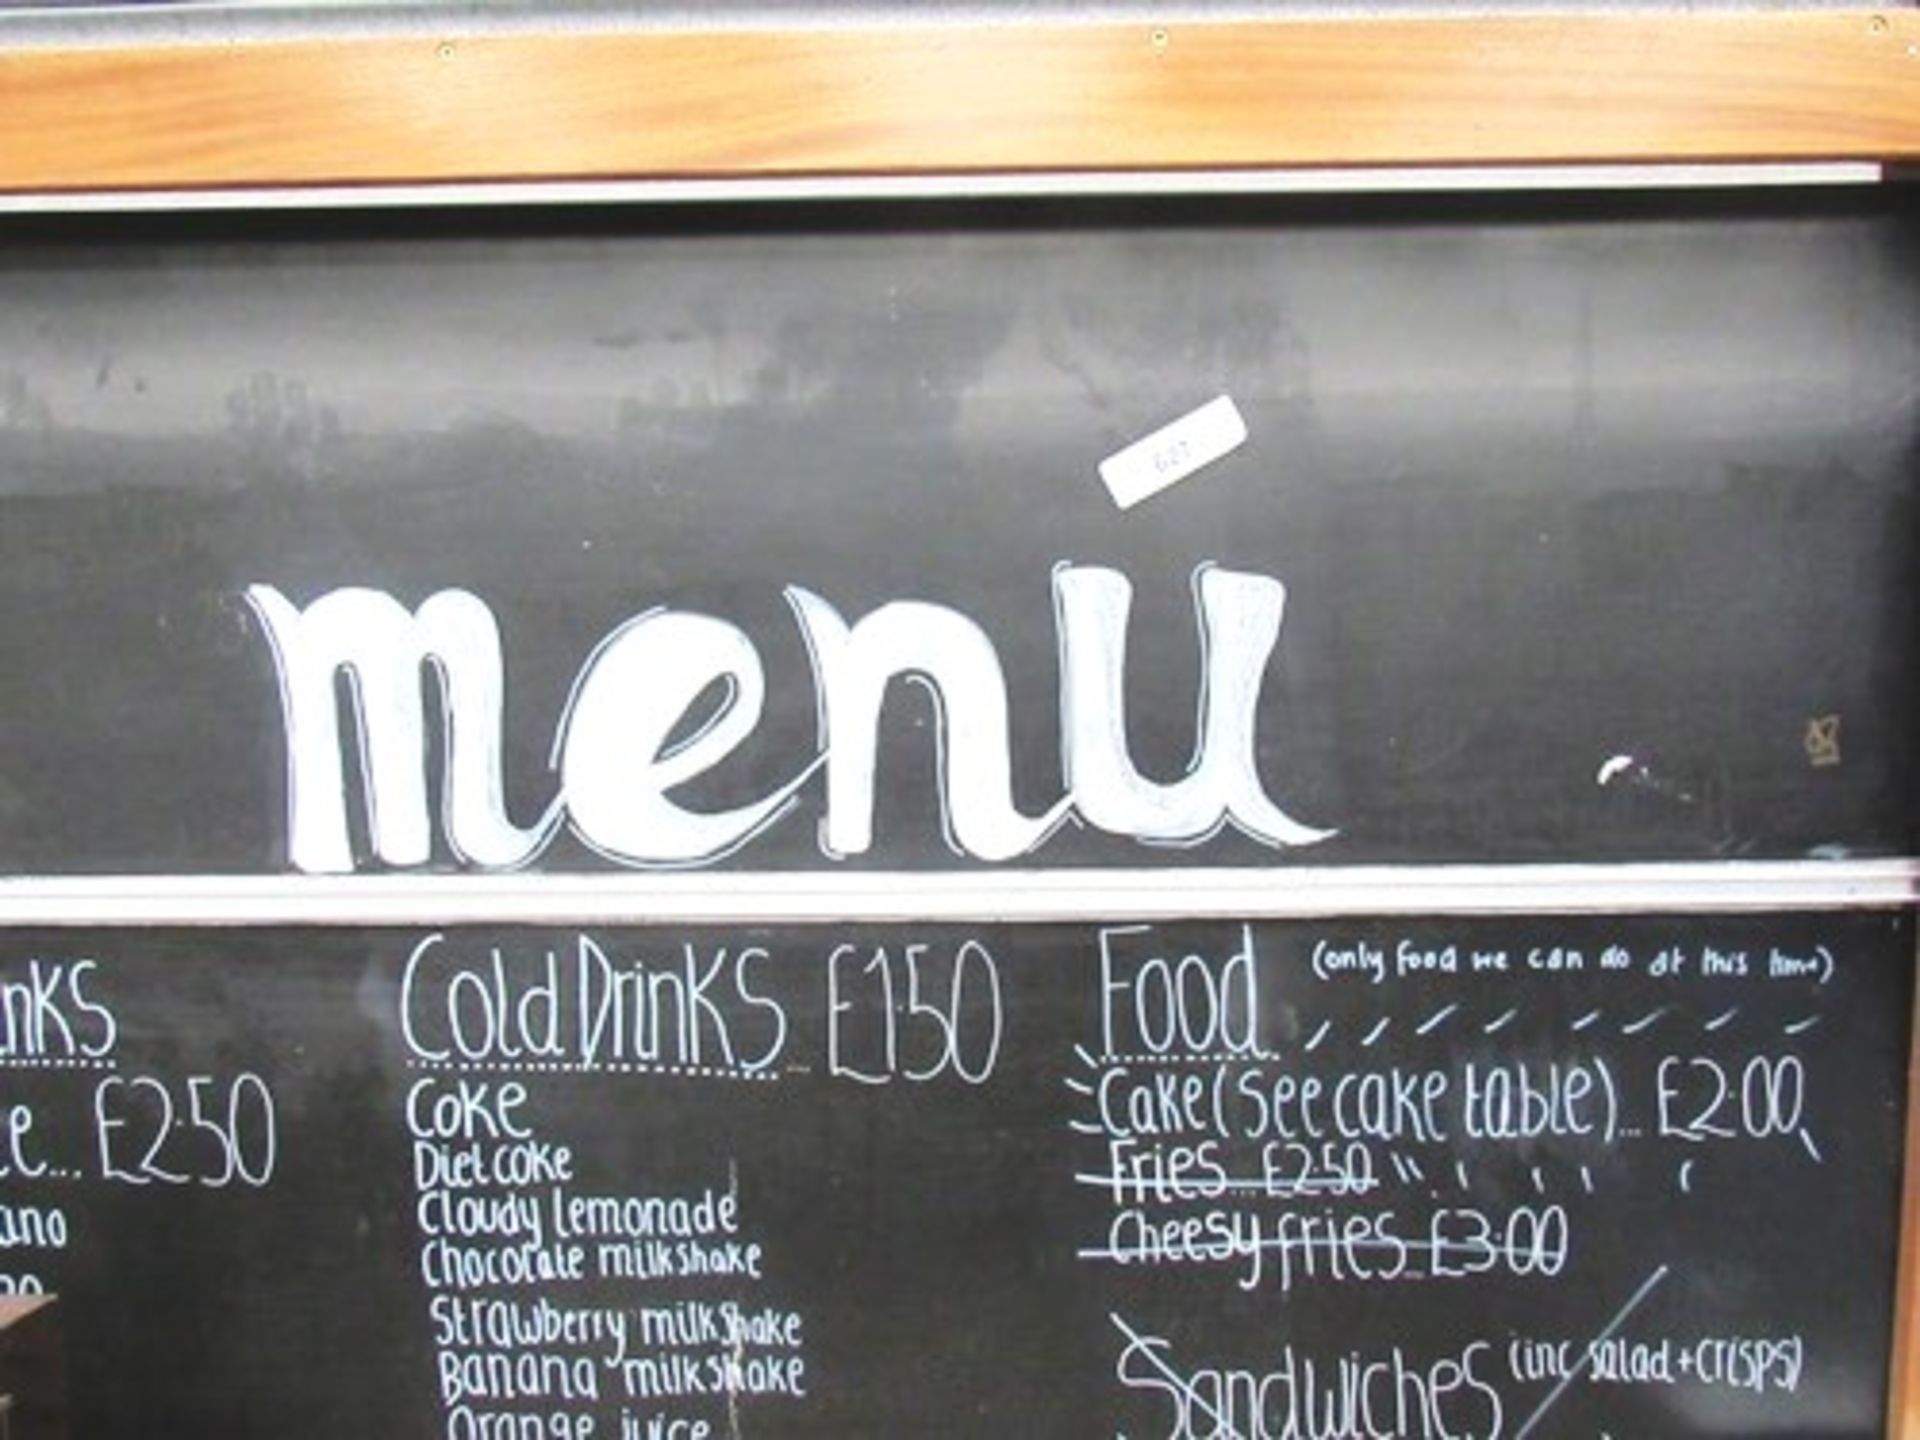 menu
nks
e... £2.50
ano
Cold Drinks... £1.50
Coke
Diet coke
Cloudy lemonade
Chocolate milkshake
Strawberry milkshake
Banana milkshake
Orange juice
Food (only food we can do at this time)
Cake (see cake table)... £2.00
Fries... £2.50
Cheesy fries... £3.00
Sandwiches (inc salad + crisps)